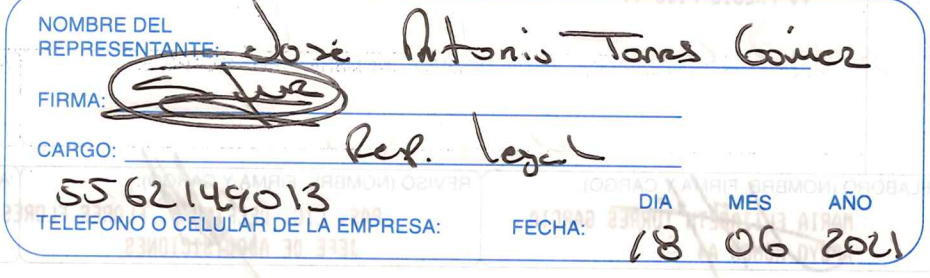 NOMBRE DEL
REPRESENTANTE: José Antonio Torres Gómez
FIRMA:
CARGO: Rep. legal
5562149013
TELEFONO O CELULAR DE LA EMPRESA:
FECHA:
DIA MES AÑO
18 06 2021